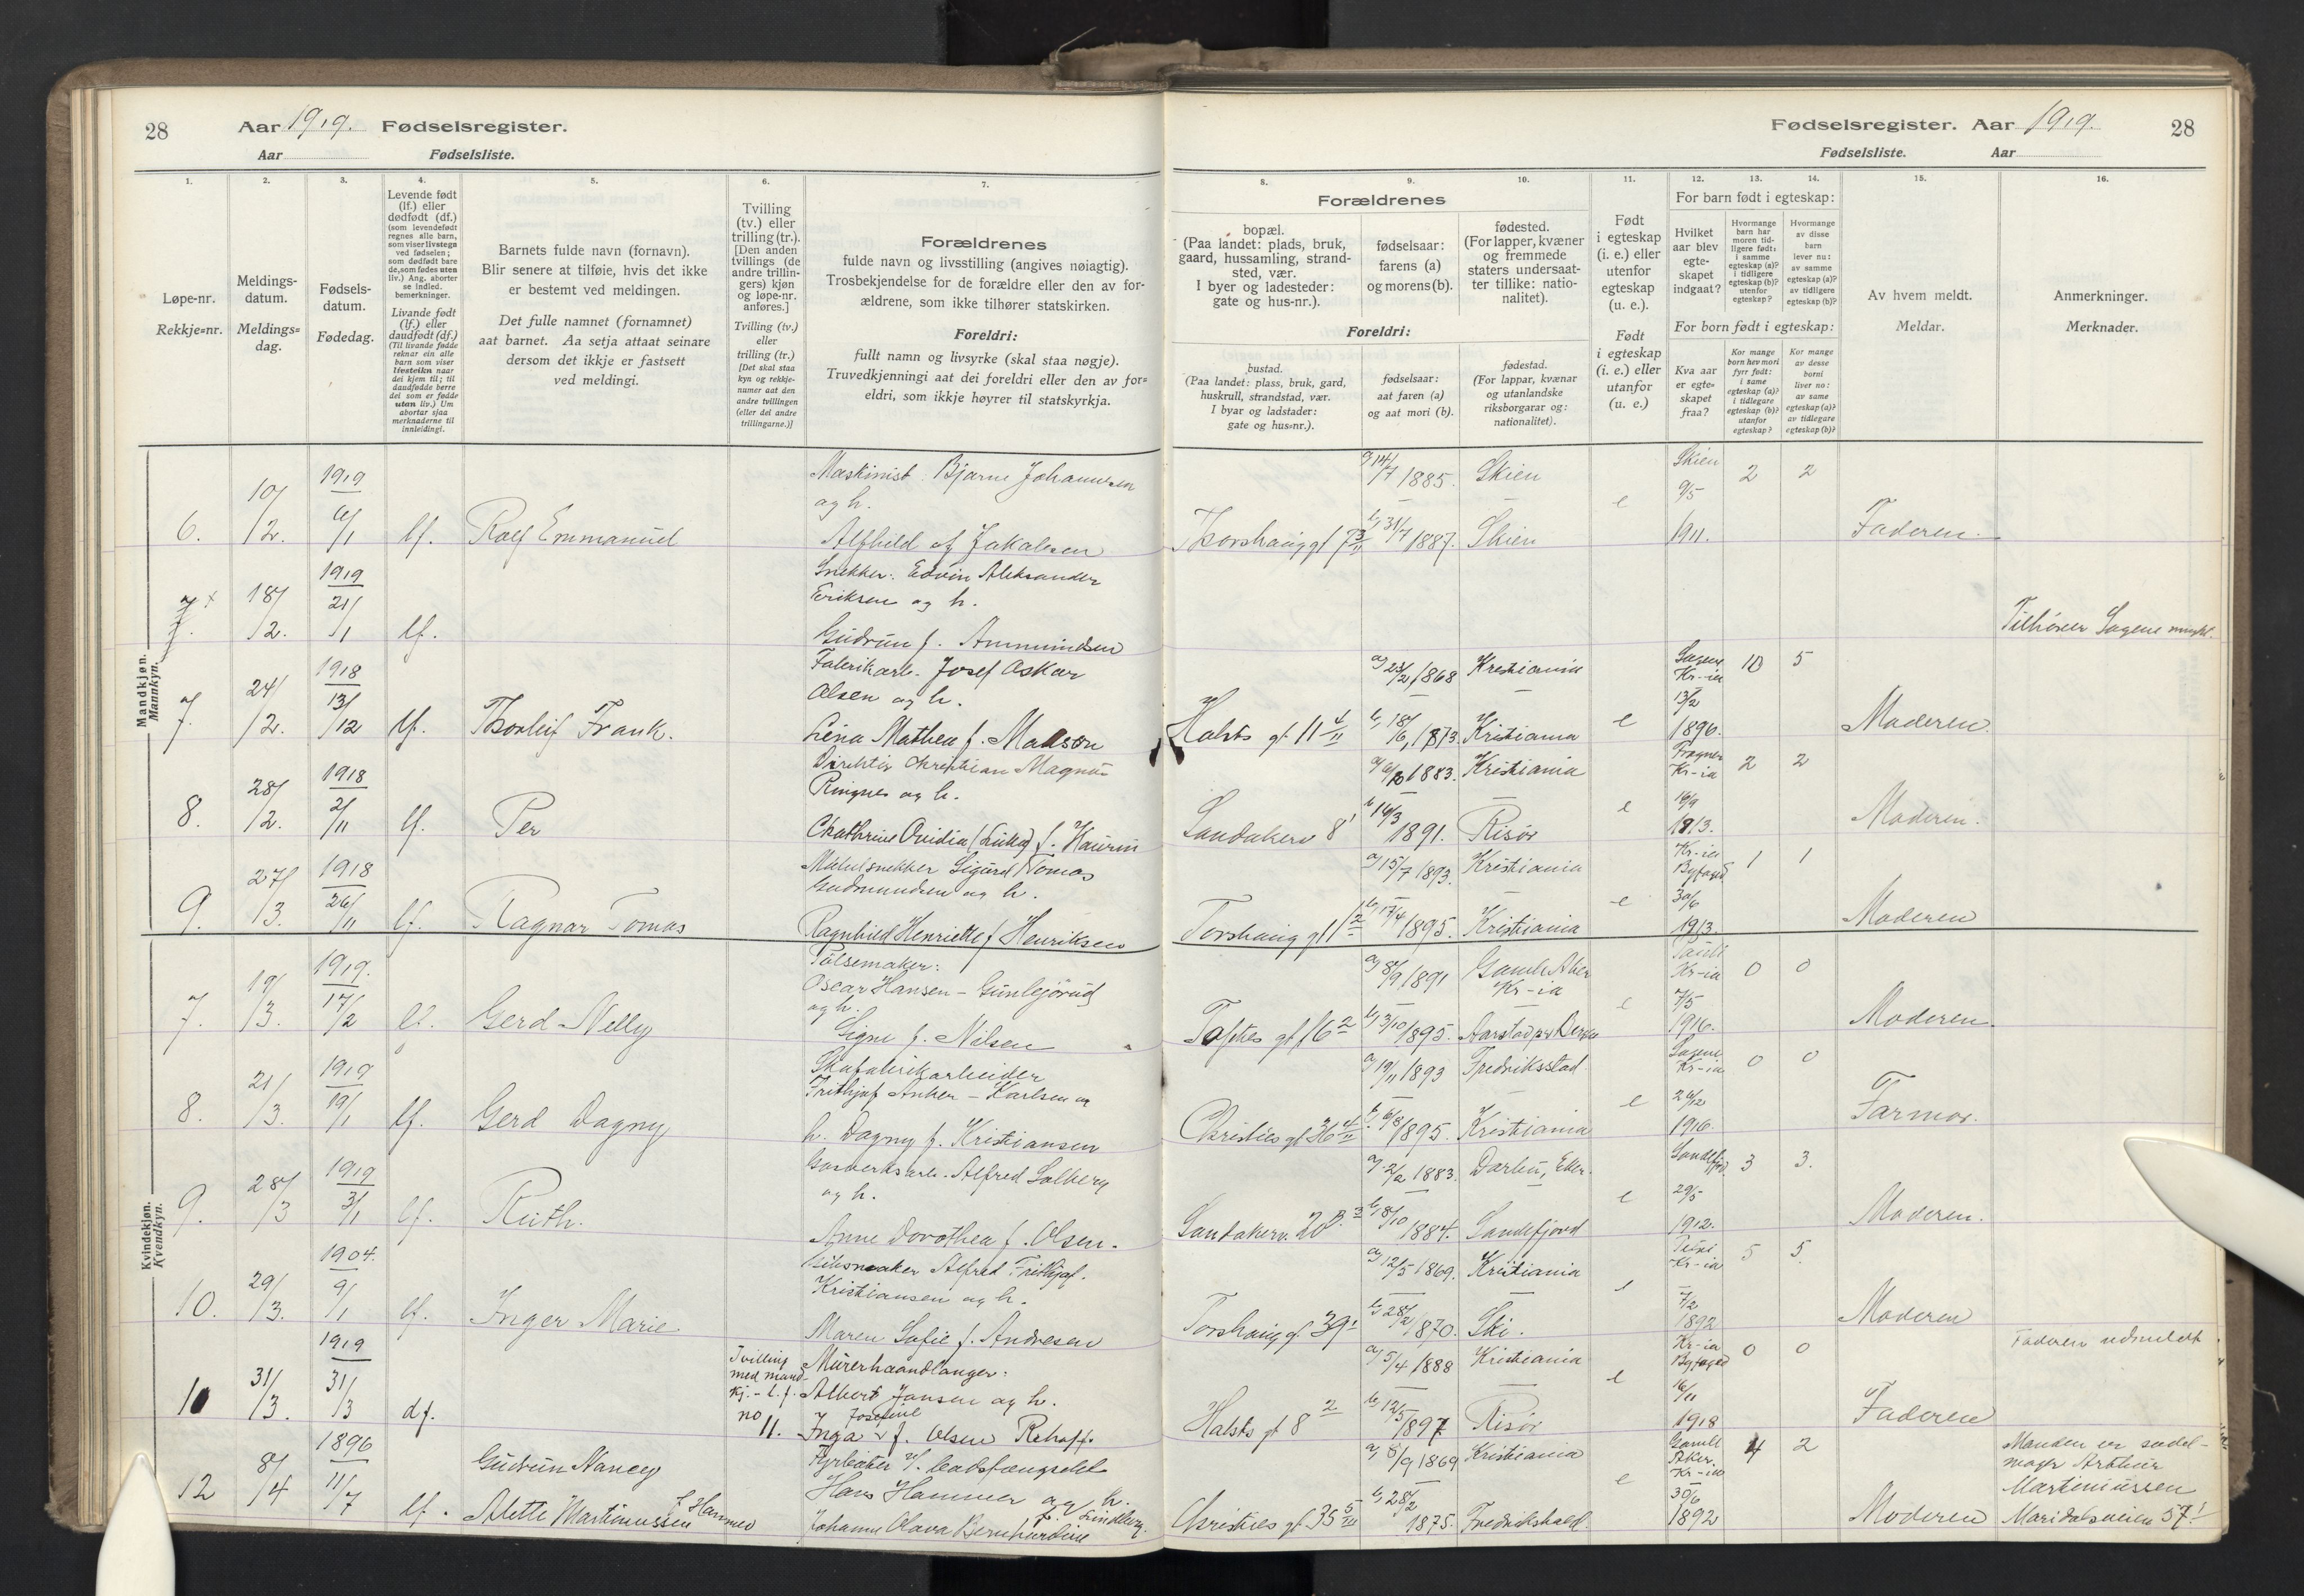 28 Aar 1919. Fødselsregister.
Aar Fødselsliste.
1.
Løpe-nr.
Rekkje=nr.
2.
Meldings-
datum.
Meldings=
dag.
3.
Fødsels-
datum.
Fødedag.
4.
Levende født
(lf.) eller
dødfødt (df.)
(som levendefødt
regnes alle barn,
som viser livstegn
ved fødselen;
som dødfødt bare
de, som fødes uten
liv.) Ang. aborter
se indled.
bemerkninger.
Livande født
(lf.) eller
daudfødt (df.)
(Til livande fødde
reknar ein alle
barn som viser
livsteikn naar
dei kjem til; til
daudfødde berre
dei som er fødde
utan liv.) Um
abortar sjaa
merknaderne til
innleidingi.
5.
Barnets fulde navn (fornavn).
Blir senere at tilføie, hvis det ikke
er bestemt ved meldingen.
Det fulle namnet (fornamnet)
aat barnet. Aa setja attaat seinare
dersom det ikkje er fastsett
ved meldingi.
6.
Tvilling
(tv.) eller
trilling (tr.).
[Den anden
tvillings (de
andre trillin-
gers) kjøn
og løpe-nr.
anføres.]
Tvilling (tv.)
eller
trilling (tr.)
[Det skal staa
kyn og rekkje-
numer aat den
andre tvillingen
(eller dei andre
trillingarne.)]
7.
Forældrenes
fulde navn og livsstilling (angives nøiagtig).
Trosbekjendelse for de forældre eller den av for-
ældrene, som ikke tilhører statskirken.
Foreldri:
fullt namn og livsyrke (skal staa nøgje).
Truvedkjenningi aat dei foreldri eller den av for=
eldri, som ikkje høyrer til statskyrkja.
Mandkjøn.
Mannkyn.
6. 10/2. 1919 6/1 lf. Rolf Emmanuel
Maskinist Bjarne Johannesen
og h.
Alfhild f. Jakobsen
7. 18/2. 1919 21/1 lf.
Snekker. Edvin Aleksander
Eriksen og h.
Gudrun f. Ammundsen
7. 24/2. 1918 13/12 lf. Thorleif Frank.
Fabrikarb. Josef Oskar
Olsen og h.
Lina Mathea f. Madsen
8. 28/2. 1918 2/11 lf. Per
Direktør Christian Magnus
Ringnes og h.
Chathrine Ovidia
9. 27/3. 1918 26/11 lf. Ragnar Tomas
Møbelsnekker Sigurd Tomas
Gudmundsen og h.
Ragnhild Henriette f Henriksen
Kvindekjøn.
Kvendkyn.
7. 19/3. 1919. 17/2 lf. Gerd Nelly
Pølsemaker:
Oscar Hansen - Gunlejørud
og h.
Signe f. Nilsen
8. 21/3. 1919 19/1 lf. Gerd Dagny
Skofabrikarbeider
Frithjof Anker - Karlsen og
h. Dagny f. Kristiansen
9. 28/3 1919 3/1 lf. Ruth.
Gasverksarb. Alfred Solberg
og h.
Anne Dorothea f. Olsen.
10. 29/3. 1904. 9/1 lf. Inger Marie
Alfred Frithjof.
Kristiansen og h.
Maren Sofie f. Andresen
10 31/3. 1919 31/3 df.
Tvilling
med mand-
kj. - l.f.
no 11.
Murerhaandlanger:
Albert Jansen og h.
Josefine
Inga f. Olsen Rehoff.
12 8/4 1896 11/7 lf.
Gudrun Nancy
Alette Martinussen f Hammer
Fyrbøter v. bodsfængselet
Hans Hammer og h.
f. Lindberg.
Johanne Olava
Fødselsregister. Aar 1919. 28
Fødselsliste. Aar
8.
Forældrenes
bopæl.
(Paa landet: plads, bruk,
gaard, hussamling, strand-
sted, vær.
I byer og ladesteder:
gate og hus-nr.).
Foreldri:
bustad.
(Paa landet: plass, bruk, gard,
huskrull, strandstad, vær.
I byar og ladstader:
gate og hus=nr.).
9.
fødselsaar:
farens (a)
og morens (b).
fødselsaar:
aat faren (a)
og aat mori (b).
10.
fødested.
(For lapper, kvæner
og fremmede
staters undersaat-
ter tillike: natio-
nalitet).
fødestad.
(For lappar, kvænar
og utanlandske
riksborgarar og:
nationalitet).
11.
Født
i egteskap
(i. e.) eller
utenfor
egteskap
(u. e.).
Født
i egteskap
(i. e.) eller
utanfor
(u. e.)
12. 13. 14.
For barn født i egteskap:
Hvilket
aar blev
egte-
skapet
indgaat?
Hvormange
barn har
moren tid-
ligere født:
i samme
egteskap (a)?
i tidligere
egteskap (b)?
utenfor
egteskap?
Hvormange
av disse
barn
lever nu:
av samme
egteskap (a)?
av tidligere
egteskap (b)?
For born født i egteskap:
Kva aar
er egte=
skapet
fraa?
Kor mange
born hev mori
fyrr født:
i same
egteskap (a)?
i tidlegare
egteskap (b)?
utanfor
egteskap?
Kor mange
av desse
borni
liver no:
av same
egteskap (a)?
av tidlegare
egteskap (b)?
15.
Av hvem meldt.
Meldar.
16.
Anmerkninger.
Merknader.
a) 14/7 1885. Skien Skien 2 2
9/5
Thorshauggt 7 3/II b) 31/7 1887. Skien e 1911. Faderen.
Tilhører Sagene
a) 23/2 1868 Kristiania Sagene Kr-ia 10 5
13/2
Holsts gt. 11 4/II b) 18/6, 1873. Kristiania e 1896. Moderen.
1883. Kristiania Frogner Kr-ia 2 2
16/9
Sandakerv 8 1 b 16/3 1891. Risør e 1913. Moderen.
a) 15/7 1893. Kristiania Kr-ia Byfoged 1 1
30/6
Torshauggt 11 2 b) 17/4 1895. Kristiania e 1913. Moderen
a) 8/9 1891 Gamle Aker Kr-ia Pauli Kr-ia 0 0
7/5
Toftes gt 16 2 b) 3/10 1895. e 1916. Moderen.
a) 19/11 1893 Fredriksstad. Sagene Kr-ia 0 0
26/12
Christies gt 36 4/II b. 6/8 1895. Kristiania e 1916. Farmor.
a) 2/2 1883. Darbu, Eker. Sandefjord 3 3.
29/5
Sandakerv. 20 B. 3 b) 8/10 1884. Sandefjord e 1912. Moderen.
a) 12/5 1869. Kristiania Kr-ia 5 5.
7/2
Torshauggt. 39 1 b) 28/2 1870. Ski. e 1892 Moderen
Faderen udmeldt
a) 5/4 1888 Kristiania Kr-ia Byfoged 0 0
16/11
Holsts gt 8 2 b) 12/5 1897 Risør e 1918 Faderen
a) 8/9 1869 Kristiania Gamle Aker. Kr-ia 4 2
30/6
Christies gt 35 5/III b) 28/2 1875. Fredrikshald. e 1892 Moderen
Manden er sadel-
magr Arthur
Martinussen
Maridalsveien 57 1